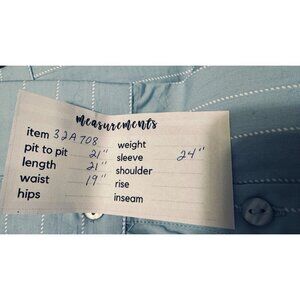 measurements
item 32A708 weight
pit to pit 21" sleeve 24"
length 21" shoulder
waist 19" rise
hips inseam